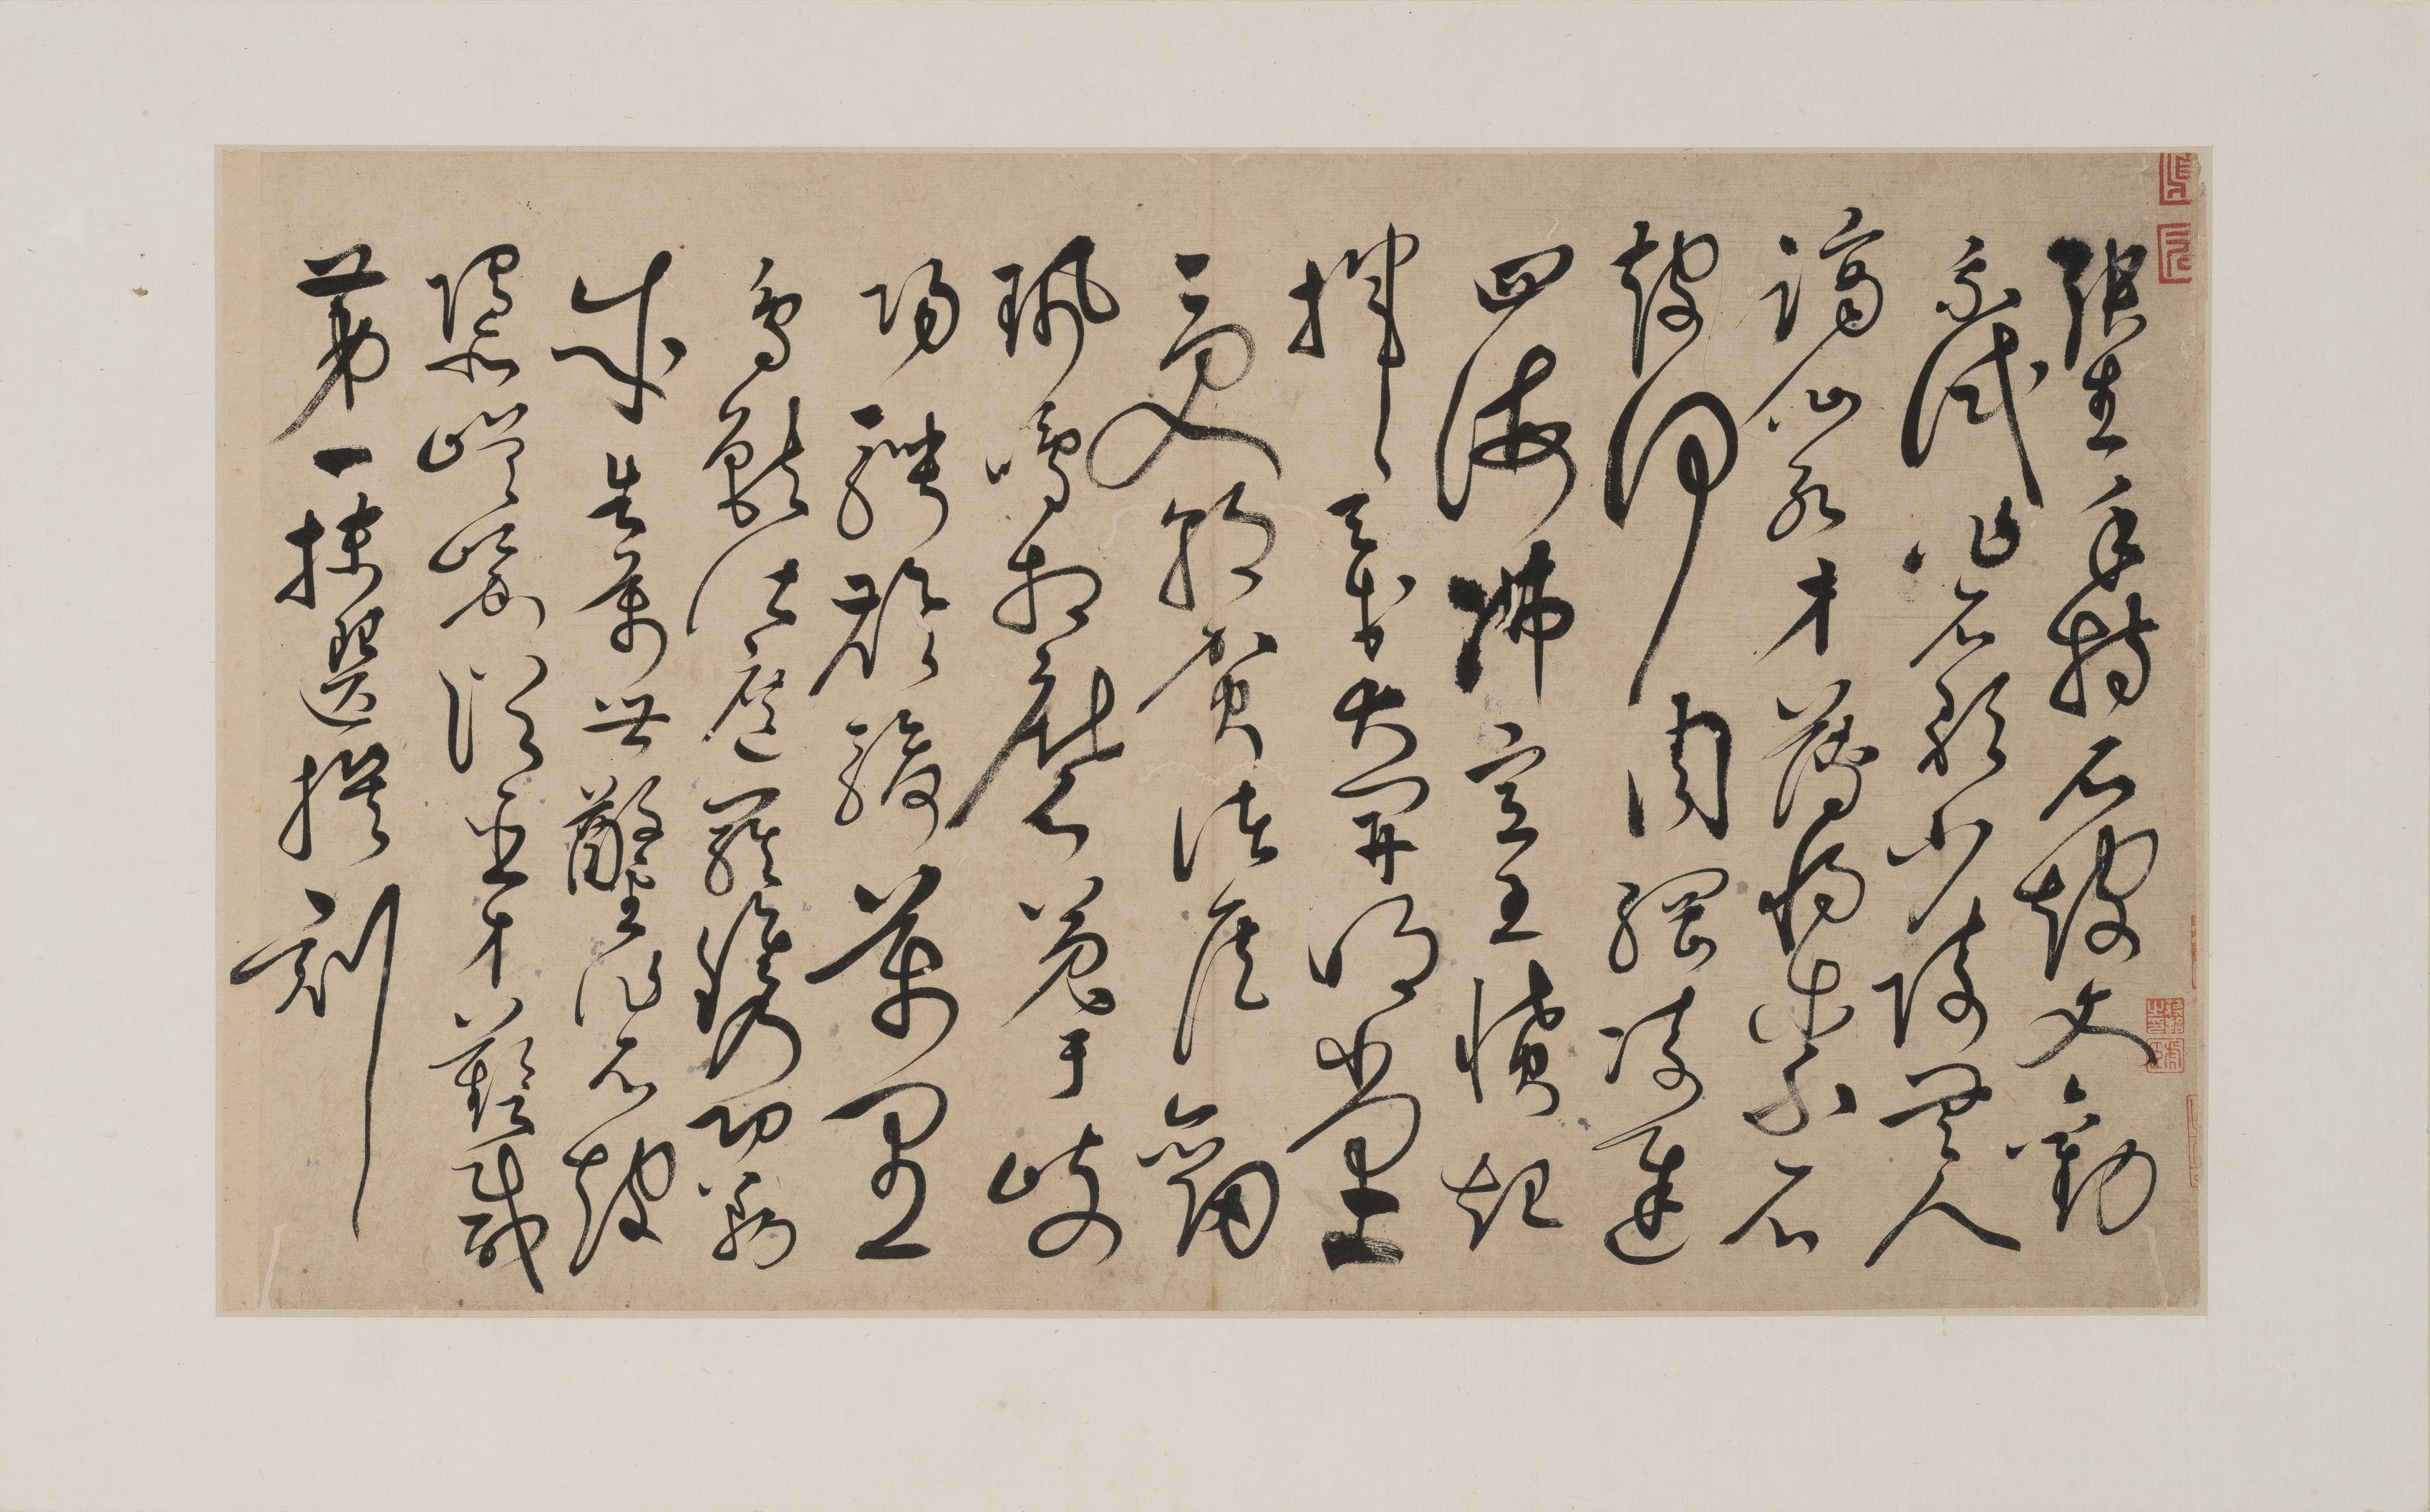 張生手持石鼓文勸
我試作石歌少陵無人
謫仙死才薄將奈石
鼓何周綱凌遲
四海沸宣王憤起
揮天戈大開明堂
受朝賀諸侯劍
珮鳴相磨蒐于岐
陽騁雄駿萬里
禽獸皆遮羅鐫功勒
成告萬世鑿作石鼓
隳嵯峨從臣才藝咸
第一揀選撰刻